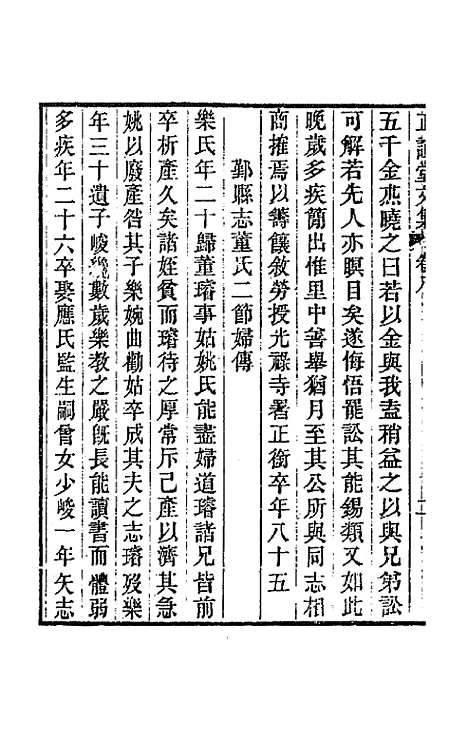 正誼堂文集 卷
五千金燕曉之曰若以金與我盍稍益之以與兄弟訟
可解若先人亦瞑目矣遂悔悟罷訟其能錫類又如此
晚歲多疾簡出惟里中善舉猶月至其公所與同志相
商搉焉以籌饟敘勞授光祿寺署正銜卒年八十五
鄞縣志董氏二節婦傳
樂氏年二十歸董璿事姑姚氏能盡婦道璿諸兄皆前
卒析產久矣諸姪貧而璿待之厚常斥己產以濟其急
姚以廢產咎其子樂婉曲勸姑卒成其夫之志璿歿樂
年三十遺子峻纔數歲樂教之嚴旣長能讀書而體弱
多疾年二十六卒娶應氏監生嗣曾女少峻一年矢志